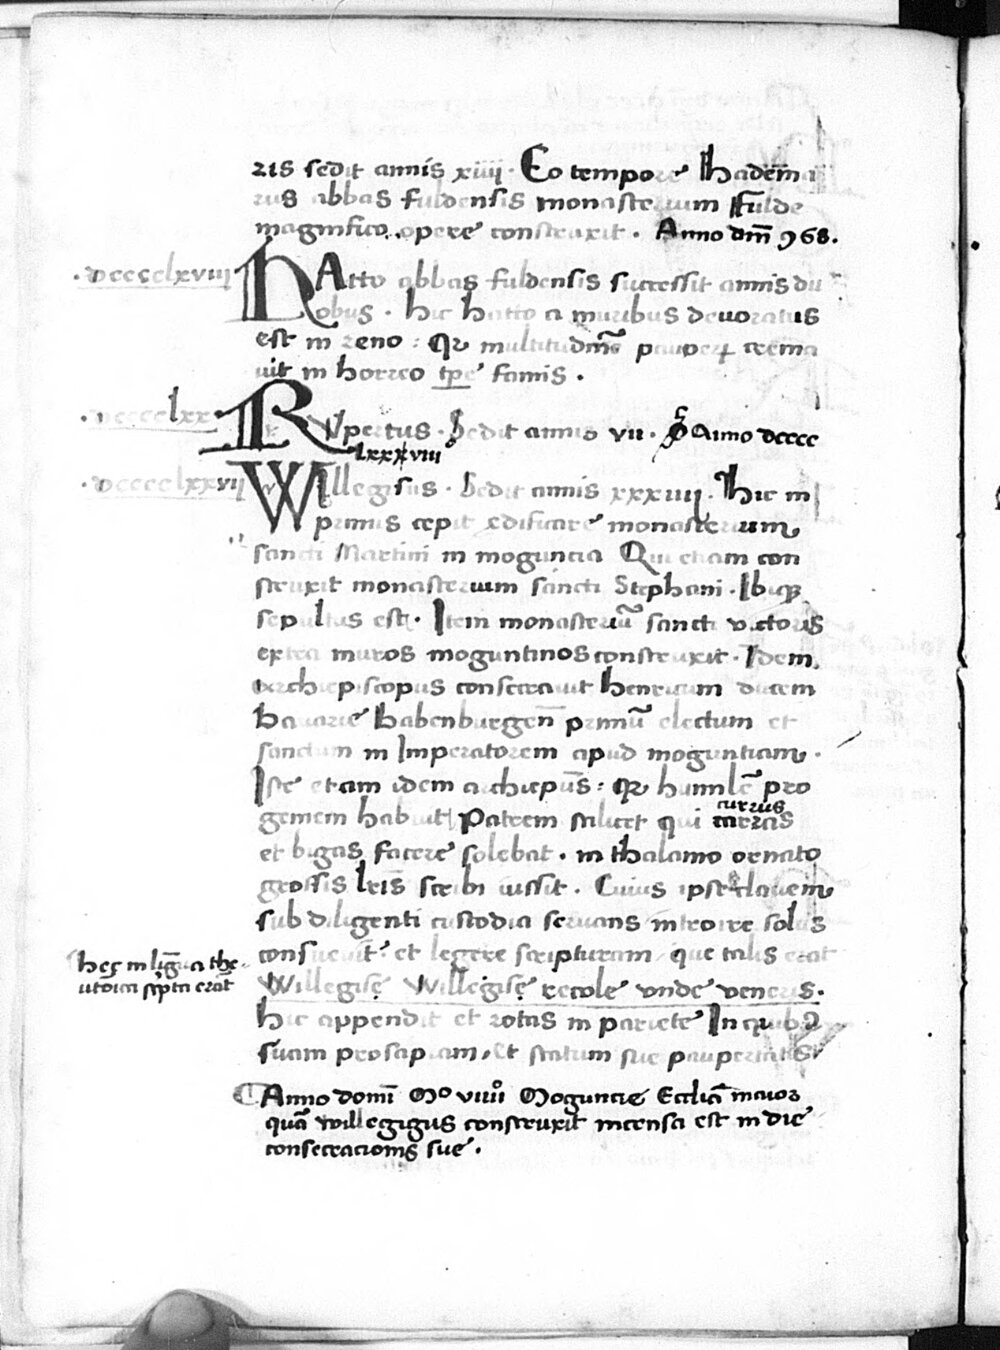 ris sedit annis xiiij · Eo tempore Hadema
rus abbas fuldensis monasterium fulde
magnifico opere construxit · Anno dm̄ 968.
· dcccclxviij
HAtto abbas fuldensis successit annis du
obus · hic hatto a muribus deuoratus
est in reno : Qr multitudinē pauperꝝ crema
uit in horreo tp̄e famis .
· dcccclxx ·
RVpertus · Sedit annis vii · Anno dcccc
lxxxviii°
· dcccclxxvij
WIllegisus · Sedit annis xxxiiij · Hic in
primis cepit edificare monasterium
sancti Martini in moguncia Qui etiam con
struxit monasterium sancti Stephani · Ibiqꝫ
sepultus est · Item monasteriū sancti victoris
extra muros moguntinos construxit · Idem
archiepiscopus consecrauit henricum ducem
bauarie Babenburgen̄ primū electum et
sanctum in Imperatorem apud moguntiam ·
Iste etiam idem archiepūs : Qr humilē pro
geniem habuit Patrem scilicet qui carras
currus
et bigas facere solebat · in thalamo ornato
grossis lr̄is scribi iussit · Cuius ipse clauem
sub diligenti custodia seruans introire solus
consueuit : et legere scripturam que talis erat
hec in līgua the
utōica sc̄pta erat
Willegise Willegise recole unde veneris ·
hic appendit et rotas in pariete In quibꝰ
suam prosapiam, et statum sue paupertatis
¶ Anno domī Mº viiiiº Moguncie Ecclīa maior
quā willegigus construxit incensa est in die
consecracionis sue .